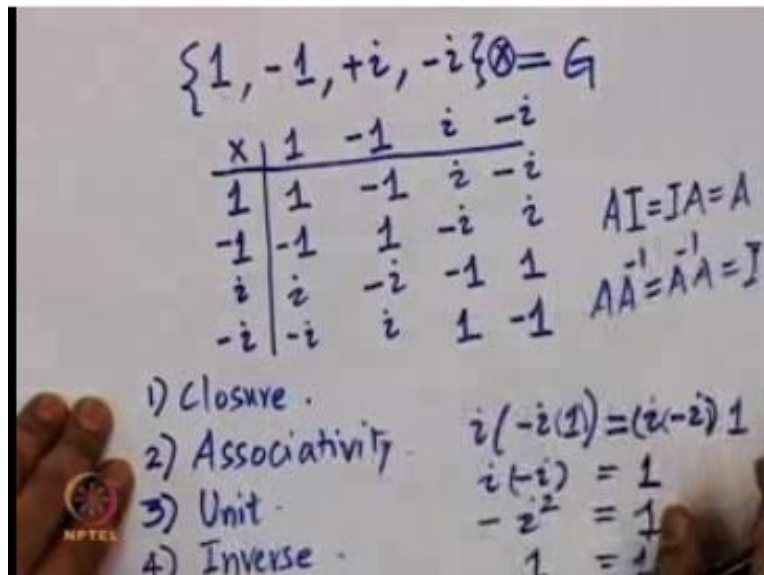 {1, -1, +i, -i} ⊗ = G
x | 1 -1 i -i
1 | 1 -1 i -i
-1 | -1 1 -i i
i | i -i -1 1
-i | -i i 1 -1
AI=IA=A
AA⁻¹=A⁻¹A=I
1) Closure.
2) Associativity.
3) Unit.
4) Inverse.
i(-i(1))=(i(-i))1
i(-i) = 1
-i² = 1
1 = 1
NPTEL